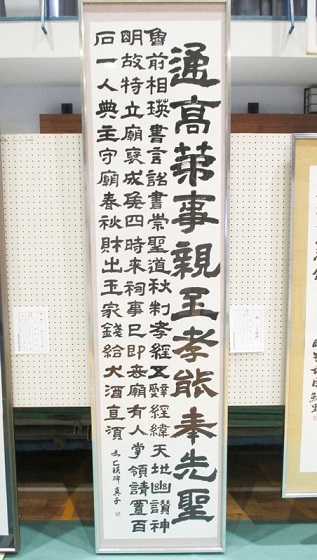 通高苐事親至孝能奉先聖
魯前相瑛書言詔書崇聖道秋制孝經五辭經緯天地幽讚神
明故特立廟襃成侯四時来祠事已即去廟有人掌領請置百
石一人典主守廟春秋財出王家錢給犬酒直須
乙瑛碑 真子